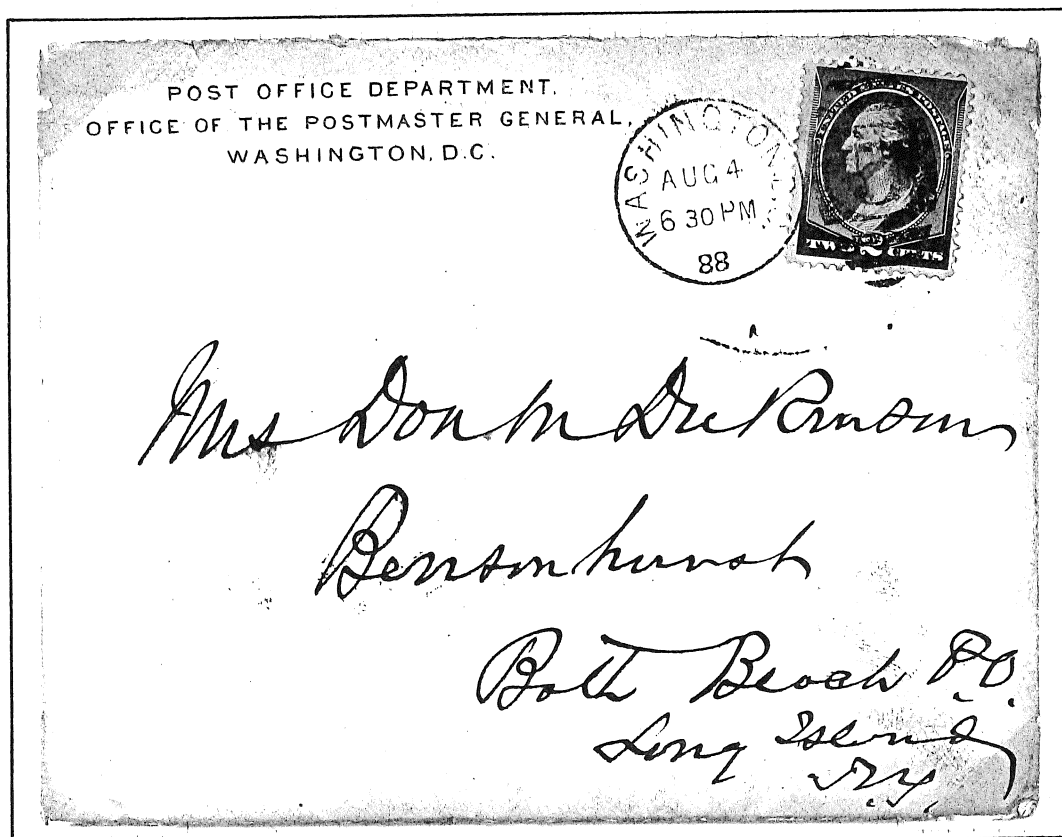 POST OFFICE DEPARTMENT,
OFFICE OF THE POSTMASTER GENERAL,
WASHINGTON, D.C.
WASHINGTON, D.C.
AUG 4
6 30 PM
88
UNITED STATES POSTAGE
TWO 2 CENTS
Mrs Don M Dickinson
Bensonhurst
Bath Beach P.O.
Long Island
N.Y.